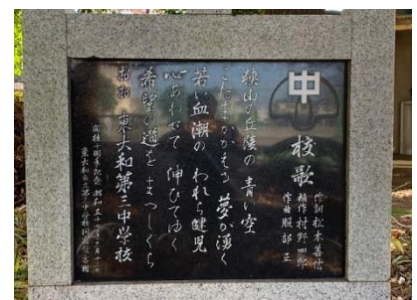 中
校歌
作詞 松本喜信
補作 村野四郎
作曲 服部正
狭山の丘陵の青い空
こだまかかえる夢が湧く
若い血潮のわれら健児
心あわせて伸びてゆく
希望の道をまっしぐら
東大和第三中学校